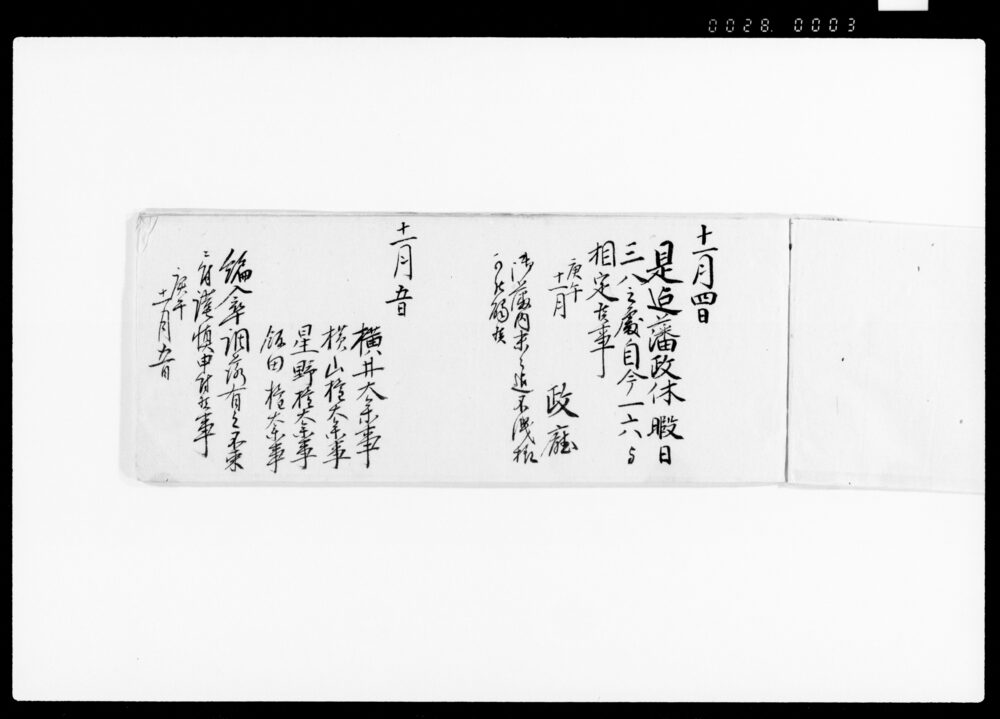 0028. 0003
十一月四日
是迄藩政休暇日
三八之處自今一六与
相定候事
庚午
十一月
政廳
藩内末々迄不洩様
可相触候
十一月五日
横井大参事
横山権大参事
星野権大参事
飯田権大参事
編入卒調落有之不束
ニ付謹慎申付候事
庚午
十一月五日